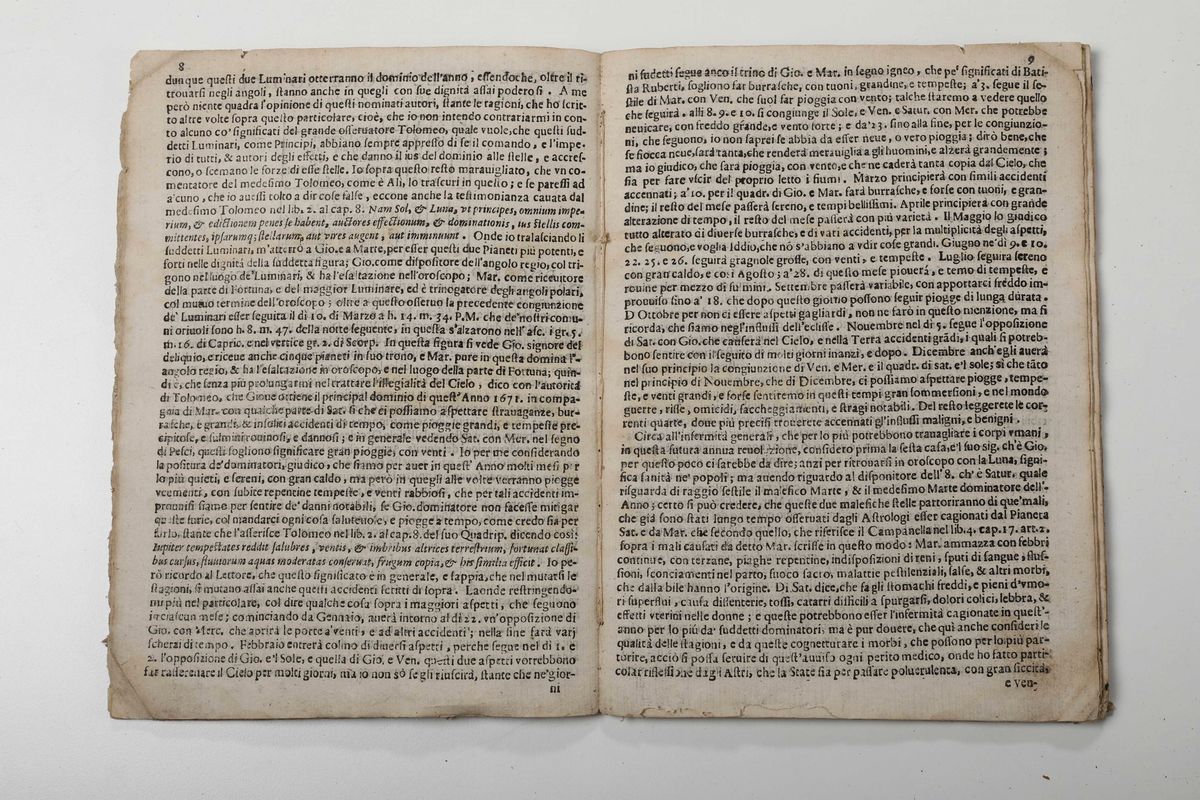 8
dunque questi due Luminari otterranno il dominio dell'anno, essendoche, oltre il ri-
trouarsi negli angoli, stanno anche in quegli con sue dignità assai poderosi. A me
però niente quadra l'opinione di questi nominati autori, stante le ragioni, che hò scrit-
to altre volte sopra questo particolare, cioè, che io non intendo contrariarmi in con-
to alcuno co' significati del grande osseruatore Tolomeo, quale vuole, che questi sud-
detti Luminari, come Principi, abbiano sempre appresso di se il comando, e l'impe-
rio di tutti, & autori degli effetti, e che danno il ius del dominio alle stelle, e accresc-
ono, o scemano le forze di esse stelle. Io sopra questo restò marauigliato, che vn co-
mentatore del medesimo Tolomeo, come è Ali, lo trascuri in questo; e se paressi ad
a'cuno, che io auessi tolto a dir cose false, eccone anche la testimonianza cauata dal
medesimo Tolomeo nel lib. 2. al cap. 8. Nam Sol, & Luna, vt principes, omnium impe-
rium, & edictionem penes se habent, auctores effectionum, & dominationis, ius stellis com-
mittentes, ipsarumq; stellarum, aut vires augent, aut imminuunt. Onde io tralasciando li
suddetti Luminari, m'atterrò a Gio. e a Marte, per esser questi due Pianeti più potenti, e
forti nelle dignità della suddetta figura; Gio. come dispositore dell'angolo regio, col tri-
gono nel luogo de' Luminari, & ha l'esaltazione nell'oroscopo; Mar. come riceuitore
della parte di Fortuna, e del maggior Luminare, ed è trinogatore degli angoli polari,
col mutuo termine dell'oroscopo; oltre a questo osseruo la precedente congiunzione
de' Luminari esser seguita il dì 10. di Marzo a h. 14. m. 34. P.M. che de' nostri comu-
ni oriuoli sono h. 8. m. 47. della notte seguente, in questa s'alzarono nell'asc. i gr. 5.
m. 16. di Capric. e nel vertice gr. 2. di Scorp. In questa figura si vede Gio. signore del
deliquio, e riceue anche cinque pianeti in suo trono, e Mar. pure in questa domina l'-
angolo regio, & ha l'esaltazione in oroscopo, e nel luogo della parte di Fortuna; quin-
di è, che senza più prolungarmi nel trattare l'illegialità del Cielo, dico con l'autorità
di Tolomeo, che Gioue ottiene il principal dominio di quest'Anno 1671. in compa-
gnia di Mar. con qualche parte di Sat. si che ci possiamo aspettare strauaganze, bur-
rasche, e grandi, & insoliti accidenti di tempo, come pioggie grandi, e tempeste pre-
cipitose, e fulmini rouinosi, e dannosi; e in generale vedendo Sat. con Mer. nel segno
di Pesci, questi sogliono significare gran pioggie, con venti. Io per me considerando
la positura de' dominatori, giudico, che siamo per auer in quest' Anno molti mesi per
lo più quieti, e sereni, con gran caldo, ma però in quegli alle volte verranno piogge
veementi, con subite repentine tempeste, e venti rabbiosi, che per tali accidenti im-
prouuisi siamo per sentire de' danni notabili, se Gio. dominatore non facesse mitigar
queste furie, col mandarci ogni cosa saluteuole, e piogge a tempo, come credo sia per
farlo, stante che l'asserisce Tolomeo nel lib. 2. al cap. 8. del suo Quadrip. dicendo così:
Iupiter tempestates reddit salubres, ventis, & imbribus altrices terrestrium, fortunat classi-
bus cursus, fluuiorum aquas moderatas conseruat, frugum copia, & his similia efficit. Io pe-
rò ricordo al Lettore, che questo significato è in generale, e sappia, che nel mutarsi le
stagioni, si mutano assai anche questi accidenti scritti di sopra. Laonde restringendo-
mi più nel particolare, col dire qualche cosa sopra i maggiori aspetti, che seguono
in ciascun mese; cominciando da Gennaio, auerà intorno al dì 22. vn'opposizione di
Gio. con Merc. che aprirà le porte a' venti, e ad altri accidenti; nella fine farà varj
scherzi di tempo. Febbraio entrerà colmo di diuersi aspetti, perche segue nel dì 1. e
2. l'opposizione di Gio. e'l Sole, e quella di Gio. e Ven. questi due aspetti vorrebbono
far rasserenare il Cielo per molti giorni, ma io non sò se gli riuscirà, stante che ne' gior-
ni
9
ni sudetti segue anco il trino di Gio. e Mar. in segno igneo, che pe' significati di Bati-
sta Ruberti, sogliono far burrasche, con tuoni, grandine, e tempeste; a' 3. segue il se-
stile di Mar. con Ven. che suol far pioggia con vento; talche staremo a vedere quello
che seguirà. alli 8. 9. e 10. si congiunge il Sole, e Ven. e Satur. con Mer. che potrebbe
neuicare, con freddo grande, e vento forte; e da' 23. sino alla fine, per le congiunzio-
ni, che seguono, io non saprei se abbia da esser neue, o vero pioggia; dirò bene, che
se fiocca neue, sarà tanta, che renderà merauiglia a gli huomini, e alzerà grandemente;
ma io giudico, che sarà pioggia, con vento, e che ne caderà tanta copia dal Cielo, che
sia per fare vscir del proprio letto i fiumi. Marzo principierà con simili accidenti
accennati; a' 10. per il quadr. di Gio. e Mar. farà burrasche, e forse con tuoni, e gran-
dine; il resto del mese passerà sereno, e tempi bellissimi. Aprile principierà con grande
alterazione di tempo, il resto del mese passerà con più varietà. Il Maggio lo giudico
tutto alterato di diuerse burrasche, e di vari accidenti, per la multiplicità degli aspetti,
che seguono, e voglia Iddio, che nō s'abbiano a vdir cose grandi. Giugno ne' dì 9. e 10.
22. 25. e 26. seguirà gragnole grosse, con venti, e tempeste. Luglio seguirà sereno
con gran caldo, e così Agosto; a' 28. di questo mese piouerà, e temo di tempeste, e
rouine per mezzo di fulmini. Settembre passerà variabile, con apportarci freddo im-
prouuiso fino a' 18. che dopo questo giorno possono seguir piogge di lunga durata.
D Ottobre per non ci essere aspetti gagliardi, non ne farò in questo menzione, ma si
ricorda, che siamo negl'influssi dell'eclisse. Nouembre nel dì 5. segue l'opposizione
di Sat. con Gio. che causerà nel Cielo, e nella Terra accidenti grādi, i quali si potreb-
bono sentire con il seguito di molti giorni inanzi, e dopo. Dicembre anch'egli auerà
nel suo principio la congiunzione di Ven. e Mer. e il quadr. di sat. e'l sole; sì che tāto
nel principio di Nouembre, che di Dicembre, ci possiamo aspettare piogge, tempe-
ste, e venti grandi, e forse sentiremo in questi tempi gran sommersioni, e nel mondo
guerre, risse, omicidi, saccheggiamenti, e stragi notabili. Del resto leggerete le cor-
renti quarte, doue più precisi trouerete accennati gl'influssi maligni, e benigni.
Circa all'infermità generali, che per lo più potrebbono trauagliare i corpi vmani,
in questa futura annua reuoluzione, considero prima la sesta casa, e'l suo sig. ch'è Gio.
per questo poco ci sarebbe da dire; anzi per ritrouarsi in oroscopo con la Luna, signi-
fica sanità ne' popoli; ma auendo riguardo al disponitore dell' 8. ch' è Satur. quale
risguarda di raggio sestile il malefico Marte, & il medesimo Marte dominatore dell'-
Anno; certo si può credere, che queste due malefiche stelle partoriranno que' mali,
che già sono stati lungo tempo osseruati dagli Astrologi esser cagionati dal Pianeta
Sat. e da Mar. che secondo quello, che riferisce il Campanella nel lib. 4. cap. 17. art. 2.
sopra i mali causati da detto Mar. scrisse in questo modo: Mar. ammazza con febbri
continue, con terzane, piaghe repentine, indisposizioni di reni, sputi di sangue, flus-
sioni, sconciamenti nel parto, fuoco sacro, malattie pestilenziali, salse, & altri morbi,
che dalla bile hanno l'origine. Di Sat. dice, che fa gli stomachi freddi, e pieni d'vmo-
ri superflui, causa dissenterie, tossi, catarri difficili a spurgarsi, dolori colici, lebbra, &
effetti vterini nelle donne; e queste potrebbono esser l'infermità cagionate in quest'-
anno per lo più da' suddetti dominatori, ma è pur douere, che quì anche consideri le
qualità delle stagioni, e da queste cognetturare i morbi, che possono per lo più par-
torire, acciò si possa seruire di quest'auuiso ogni perito medico, onde ho fatto parti-
colar riflessione dagli Astri, che la State sia per passare poluerulenta, con gran siccità,
e ven-